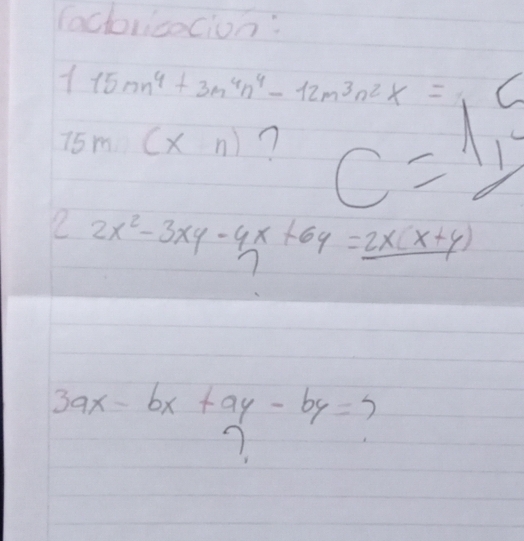 Factorización:
1 15mn⁴ + 3m⁴n⁴ - 12m³n²x =
15m (x n) ?
C =
2 2x² - 3xy - 4x + 6y = 2x(x+y)
?
3 ax - bx + ay - by = ?
?